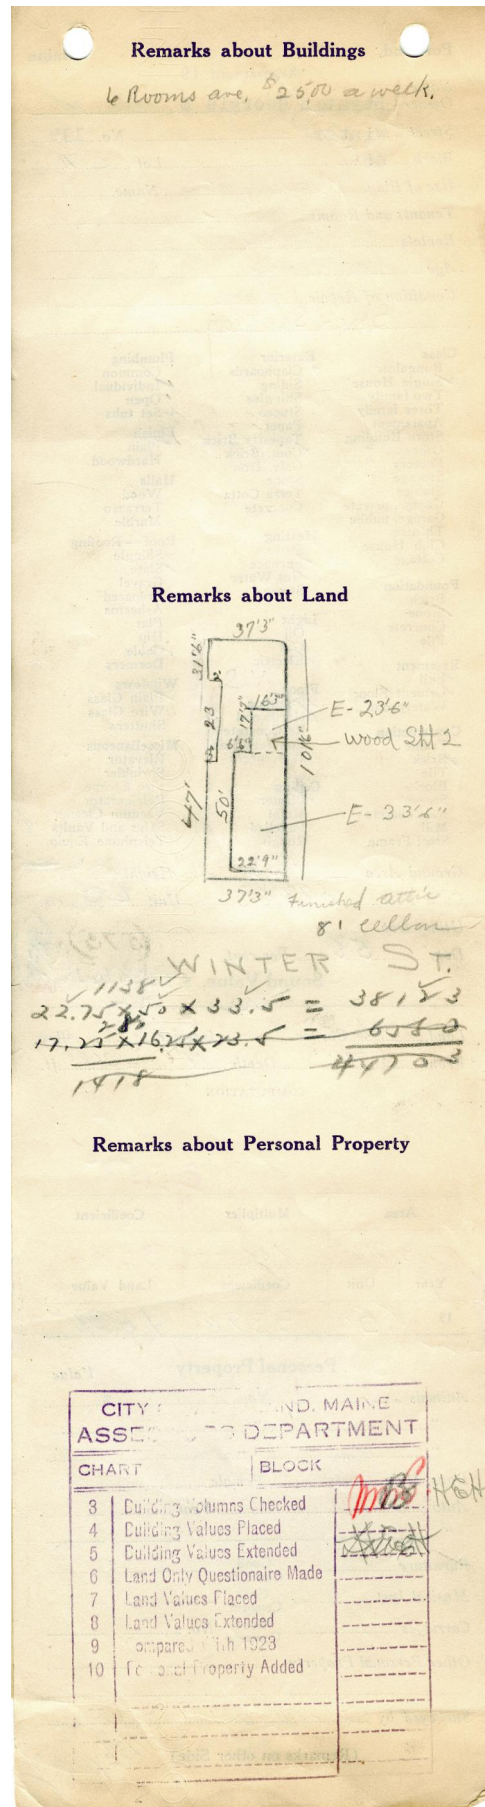 Remarks about Buildings
6 Rooms ave. $25.00 a week.
Remarks about Land
37'3"
31'6"
2'
16'3"
17'7"
23
E-23'6"
Wood Sht 2
6'6"
101'6"
47'
50'
E-33'6"
22'9"
37'3"
Finished attic
8' cellar
WINTER ST.
1138
22.75 x 50 x 33.5 = 38123
17.25 x 16.25 x 23.5 = 6580
1418
44703
Remarks about Personal Property
CITY ND, MAINE
DEPARTMENT
CHART BLOCK
3 Building Volumns Checked HGH
4 Building Values Placed
5 Building Values Extended
6 Land Only Questionaire Made
7 Land Values Placed
8 Land Values Extended
9 Compared With 1923
10 Personal Property Added